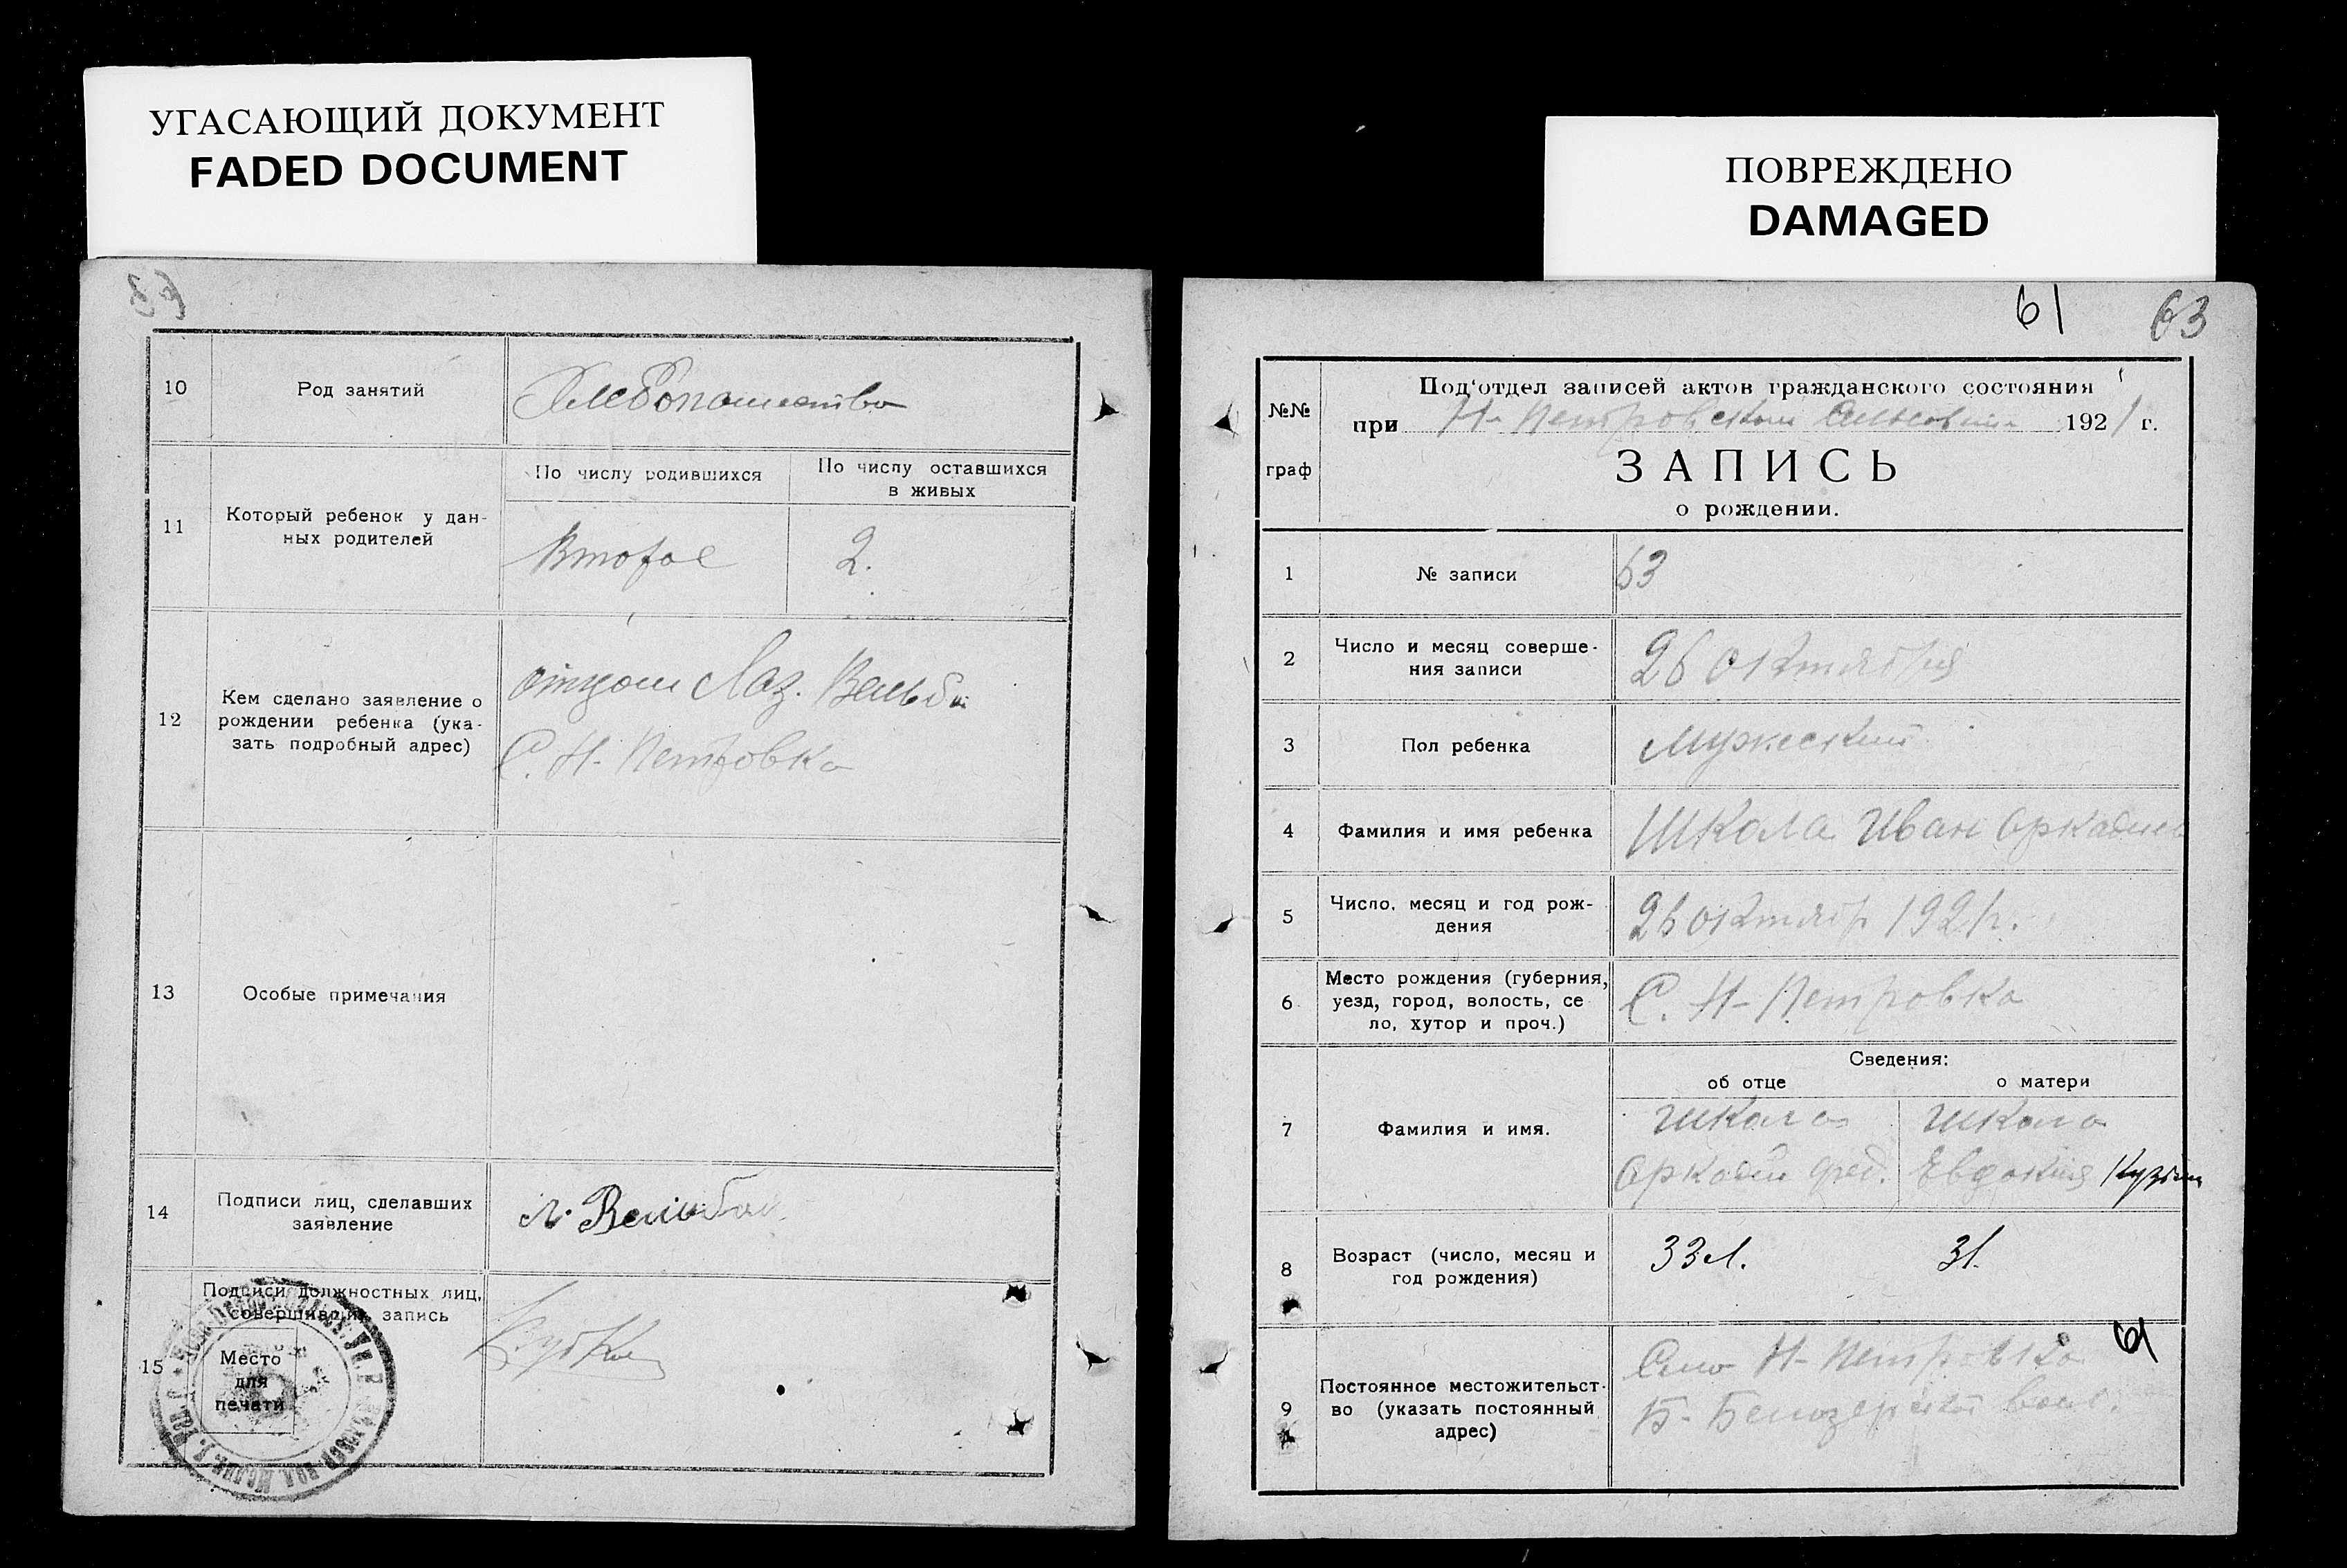 УГАСАЮЩИЙ ДОКУМЕНТ
FADED DOCUMENT
10
Род занятий
Хлебопашество
11
Который ребенок у дан-
ных родителей
По числу родившихся
Второе
По числу оставшихся
в живых
2.
12
Кем сделано заявление о
рождении ребенка (ука-
зать подробный адрес)
отцом Лаз.
С. Н-Петровка
13
Особые примечания
14
Подписи лиц, сделавших
заявление
Л.
15
Подписи должностных лиц,
совершивших запись
Место
для
печати
ПОВРЕЖДЕНО
DAMAGED
61
63
№№
граф
Под'отдел записей актов гражданского состояния
при Н-Петровском 1921 г.
ЗАПИСЬ
о рождении.
1
№ записи
63
2
Число и месяц соверше-
ния записи
26 октября
3
Пол ребенка
Мужеский
4
Фамилия и имя ребенка
Школа Иван Аркадиев
5
Число, месяц и год рож-
дения
26 октябр 1921 г.
6
Место рождения (губерния,
уезд, город, волость, се
ло, хутор и проч.)
С. Н-Петровка
Сведения:
об отце
о матери
7
Фамилия и имя.
Школа
Аркадий Фед.
Школа
Евдокия
8
Возраст (число, месяц и
год рождения)
33 л.
31.
9
Постоянное местожительст-
во (указать постоянный
адрес)
Село Н-Петровка
Б-Белозерской вол.
61